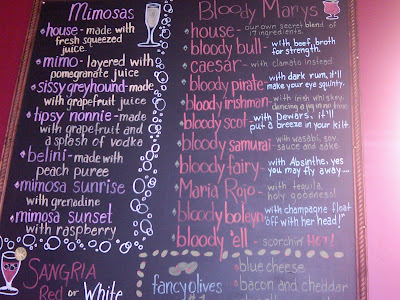 Mimosas
house - made with
fresh squeezed
juice.
mimo - layered with
pomegranate juice
sissy greyhound - made
with grapefruit juice
tipsy nonnie - made
with grapefruit and
a splash of vodka
belini - made with
peach puree
mimosa sunrise
with grenadine
mimosa sunset
with raspberry
SANGRIA
Red or White
Bloody Marys
house - our own secret blend of
17 ingredients.
bloody bull - with beef broth
for strength.
caesar - with clamato instead
bloody pirate - with dark rum, it'll
make your eye squinty.
bloody irishman - with irish whiskey,
dancing a jig in no time
bloody scot - with Dewars, it'll
put a breeze in your kilt.
bloody samurai - with wasabi, soy
sauce and sake.
bloody fairy - with Absinthe, yes
you may fly away....
Maria Rojo - with tequila,
holy goodness!
bloody boleyn - with champagne float
off with her head!"
bloody 'ell - scorchin' HOT!
fancy olives
blue cheese
bacon and cheddar